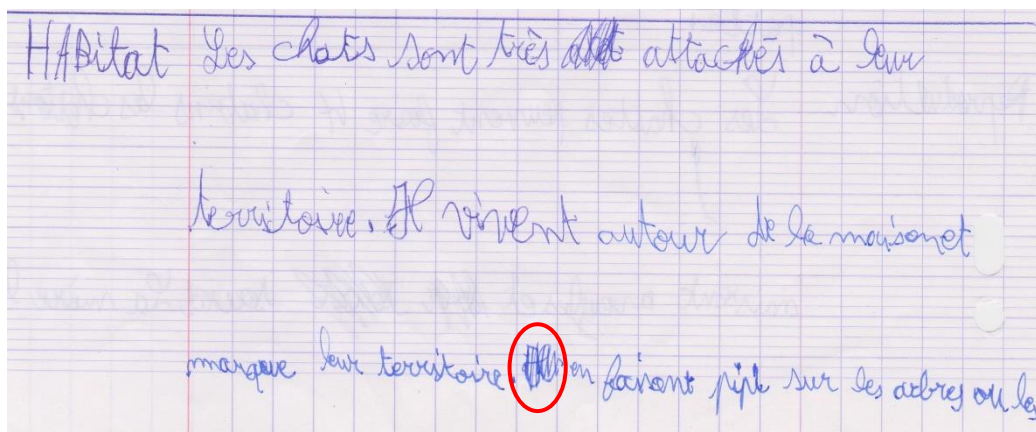 HABitat Les chats sont très attachés à leur
territoire. Il vivent autour de la maison et
marque leur territoire. en faisant pipi sur les arbres ou les